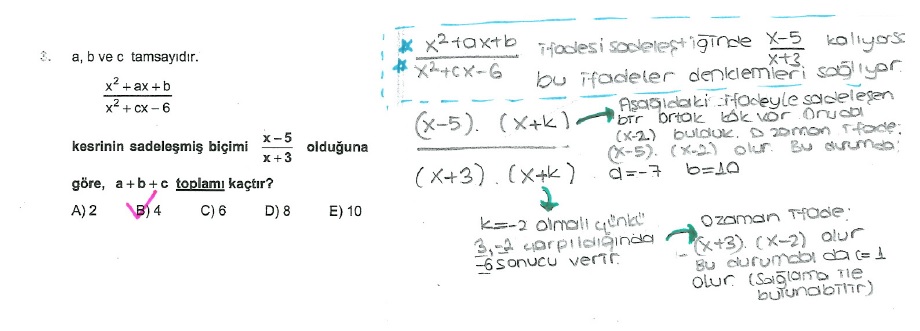 3. a, b ve c tamsayıdır.
x² + ax + b
x² + cx − 6
kesrinin sadeleşmiş biçimi x − 5 / x + 3 olduğuna
göre, a + b + c toplamı kaçtır?
A) 2 B) 4 C) 6 D) 8 E) 10
x²+ax+b / x²+cx-6 ifadesi sadeleştiğinde x-5 / x+3 kalıyorsa
bu ifadeler denklemleri sağlıyor.
(x-5). (x+k)
(x+3). (x+k)
Aşağıdaki ifadeyle sadeleşen
bir ortak kök var. Onu da
(x-2) bulduk. O zaman ifade;
(x-5). (x-2) olur. Bu durumda;
a=-7 b=10
k=-2 olmalı çünkü
3,-2 çarpıldığında
-6 sonucu verir.
O zaman ifade;
(x+3). (x-2) olur
Bu durumda da c=1
olur. (Sağlama ile
bulunabilir)